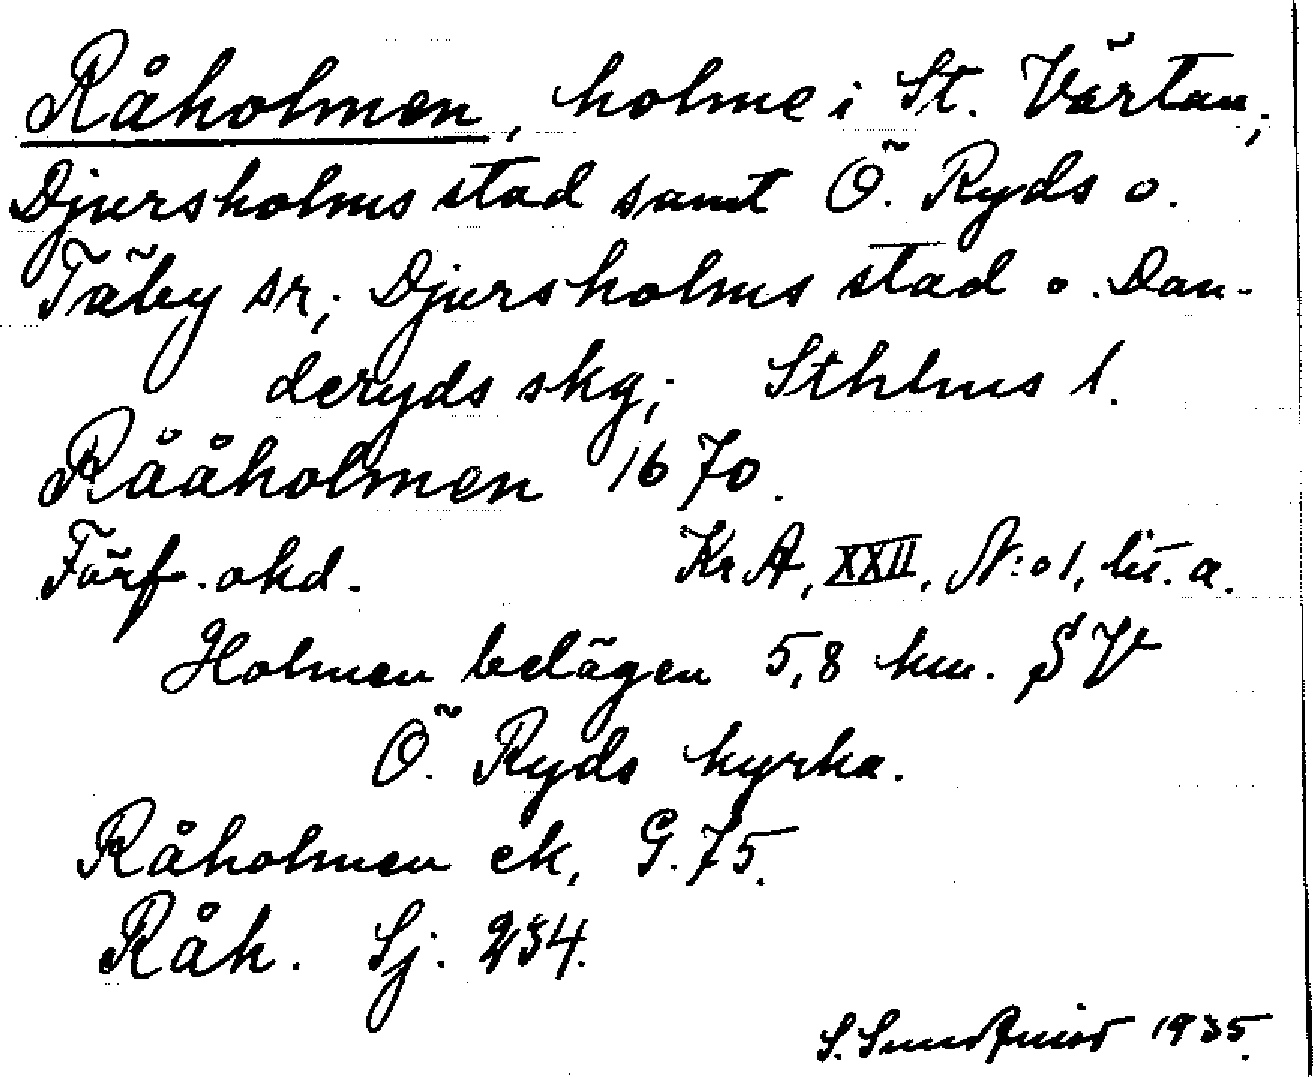 Råholmen, holme i St. Värtan;
Djursholms stad samt Ö. Ryds o.
Täby sr; Djursholms stad o. Dan-
deryds skg; Sthlms l.
Rååholmen 1670.
Förf. okd. Kr A, XXII, N:o 1, lit. a.
Holmen belägen 5,8 km. SV
Ö. Ryds kyrka.
Råholmen ek, G. 75.
Råh. Sj. 234.
S. 1935.